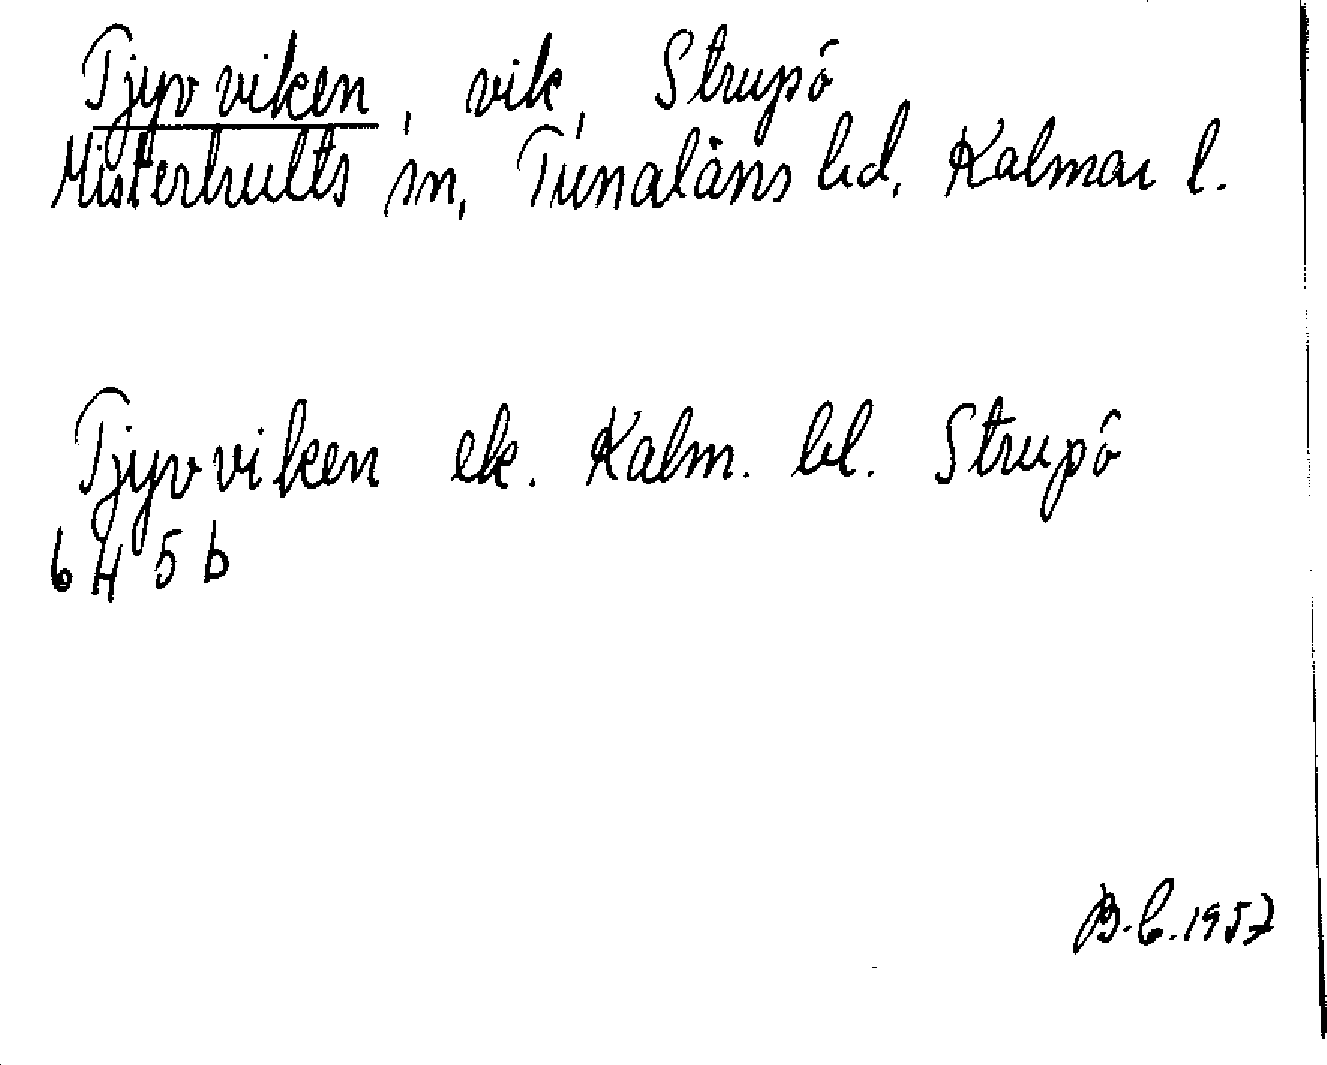 Tjyvviken, vik, Strupö
Misterhults sn, Tunaläns hd, Kalmar l.
Tjyvviken ek. Kalm. bl. Strupö
6 H 5 b
B.C. 1957